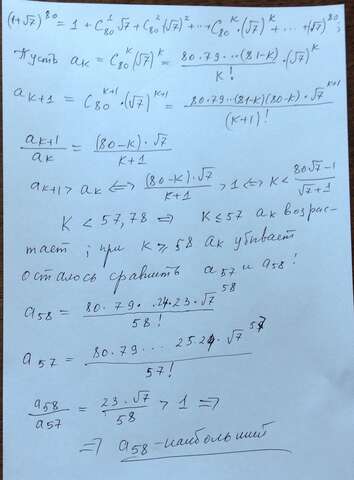 (1+√7)^80 = 1 + C₈₀¹√7 + C₈₀²(√7)² + ... + C₈₀ᴷ·(√7)ᴷ + ... + (√7)^80;
Пусть aₖ = C₈₀ᴷ(√7)ᴷ = 80·79···(81-K)/K! ·(√7)ᴷ
aₖ₊₁ = C₈₀ᴷ⁺¹·(√7)ᴷ⁺¹ = 80·79···(81-K)(80-K)·√7ᴷ⁺¹/(K+1)!
aₖ₊₁/aₖ = (80-K)·√7/(K+1)
aₖ₊₁ > aₖ ⇔ (80-K)·√7/(K+1) > 1 ⇔ K < (80√7-1)/(√7+1)
K < 57,78 ⇒ K ≤ 57 aₖ возрас-
тает; при K ⩾ 58 aₖ убывает
осталось сравнить a₅₇ и a₅₈!
a₅₈ = 80·79···24·23·√7^58/58!
a₅₇ = 80·79···25·24·√7^57/57!
a₅₈/a₅₇ = 23·√7/58 > 1 ⇒
⇒ a₅₈ - наибольший